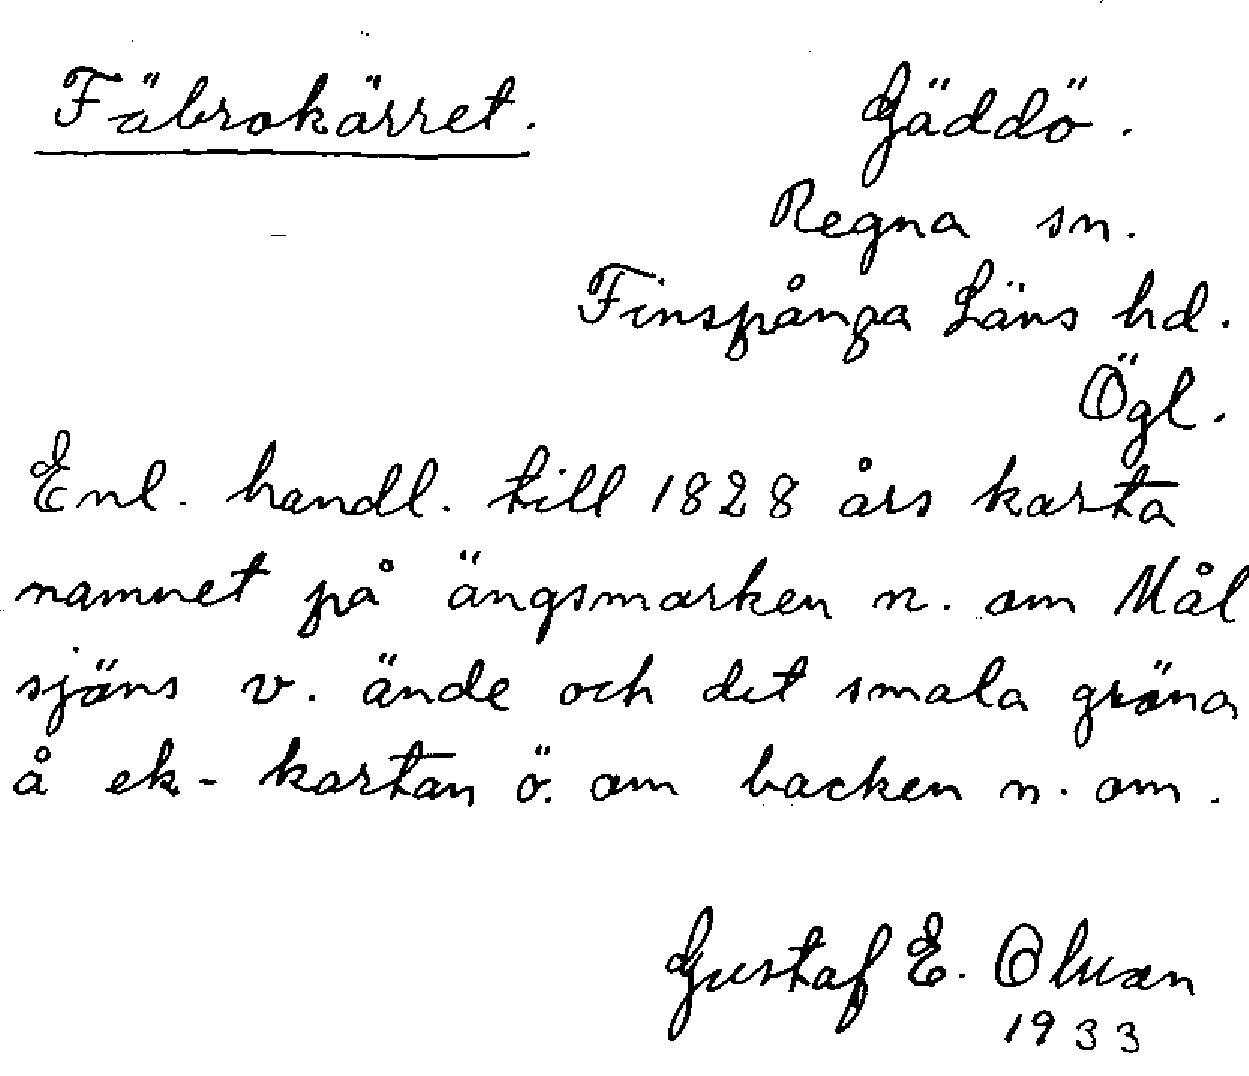 Fäbrokärret. Gäddö.
Regna sn.
Finspånga Läns hd.
Ögl.
Enl. handl. till 1828 års karta
namnet på ängsmarken n. om Mål
sjöns v. ände och det smala gröna
å ek-kartan ö. om backen n. om.
Gustaf E. Olsson
1933